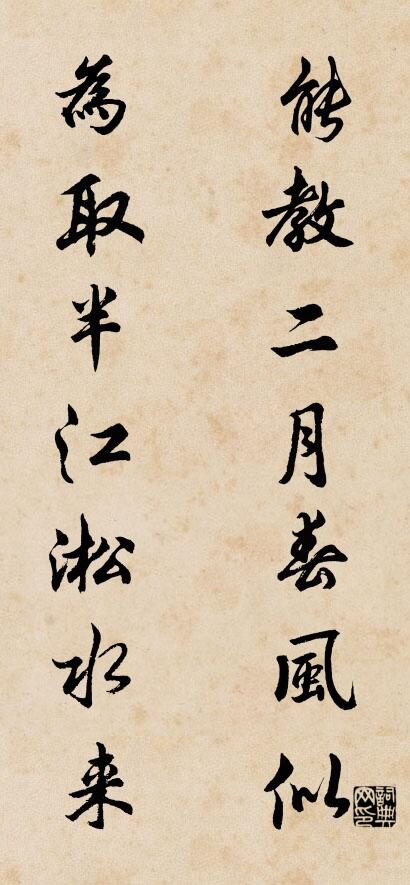 能教二月春風似
為取半江淞水来
詞典网印